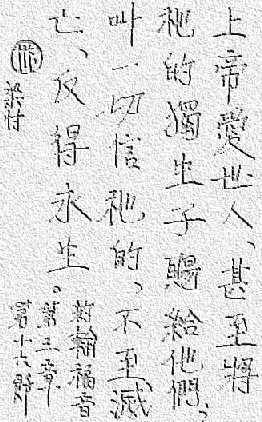 上帝愛世人、甚至將
祂的獨生子賜給他們、
叫一切信祂的、不至滅
亡、反得永生。
約翰福音
第三章
第十六節